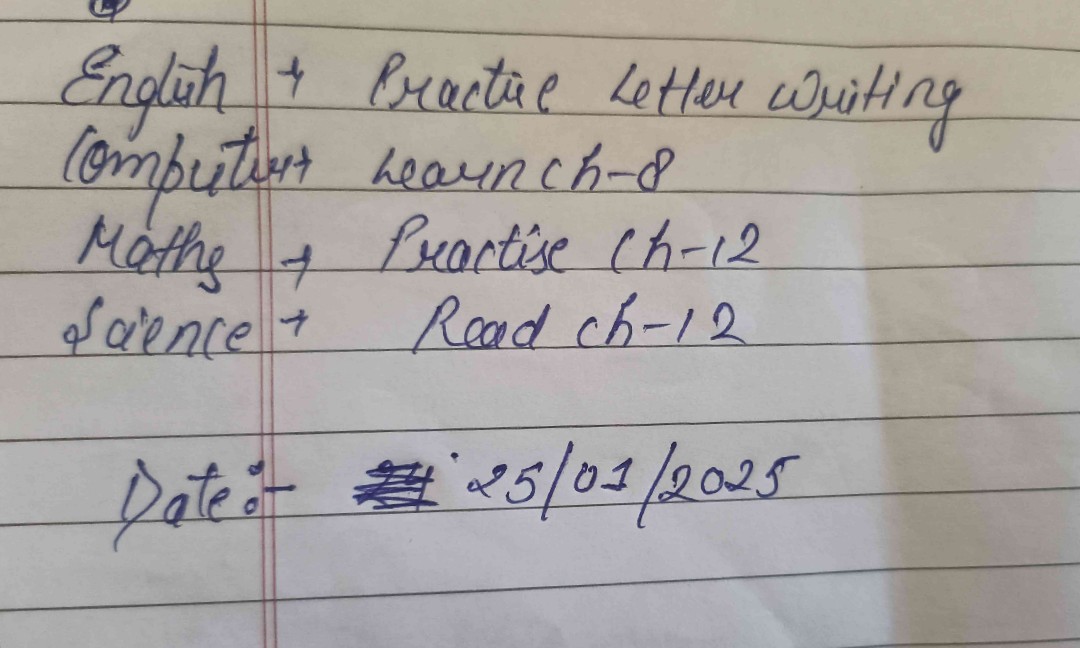 English → Practice Letter Writing
Computer → Learn ch-8
Maths → Practise Ch-12
Science → Read ch-12
Date:- 25/01/2025